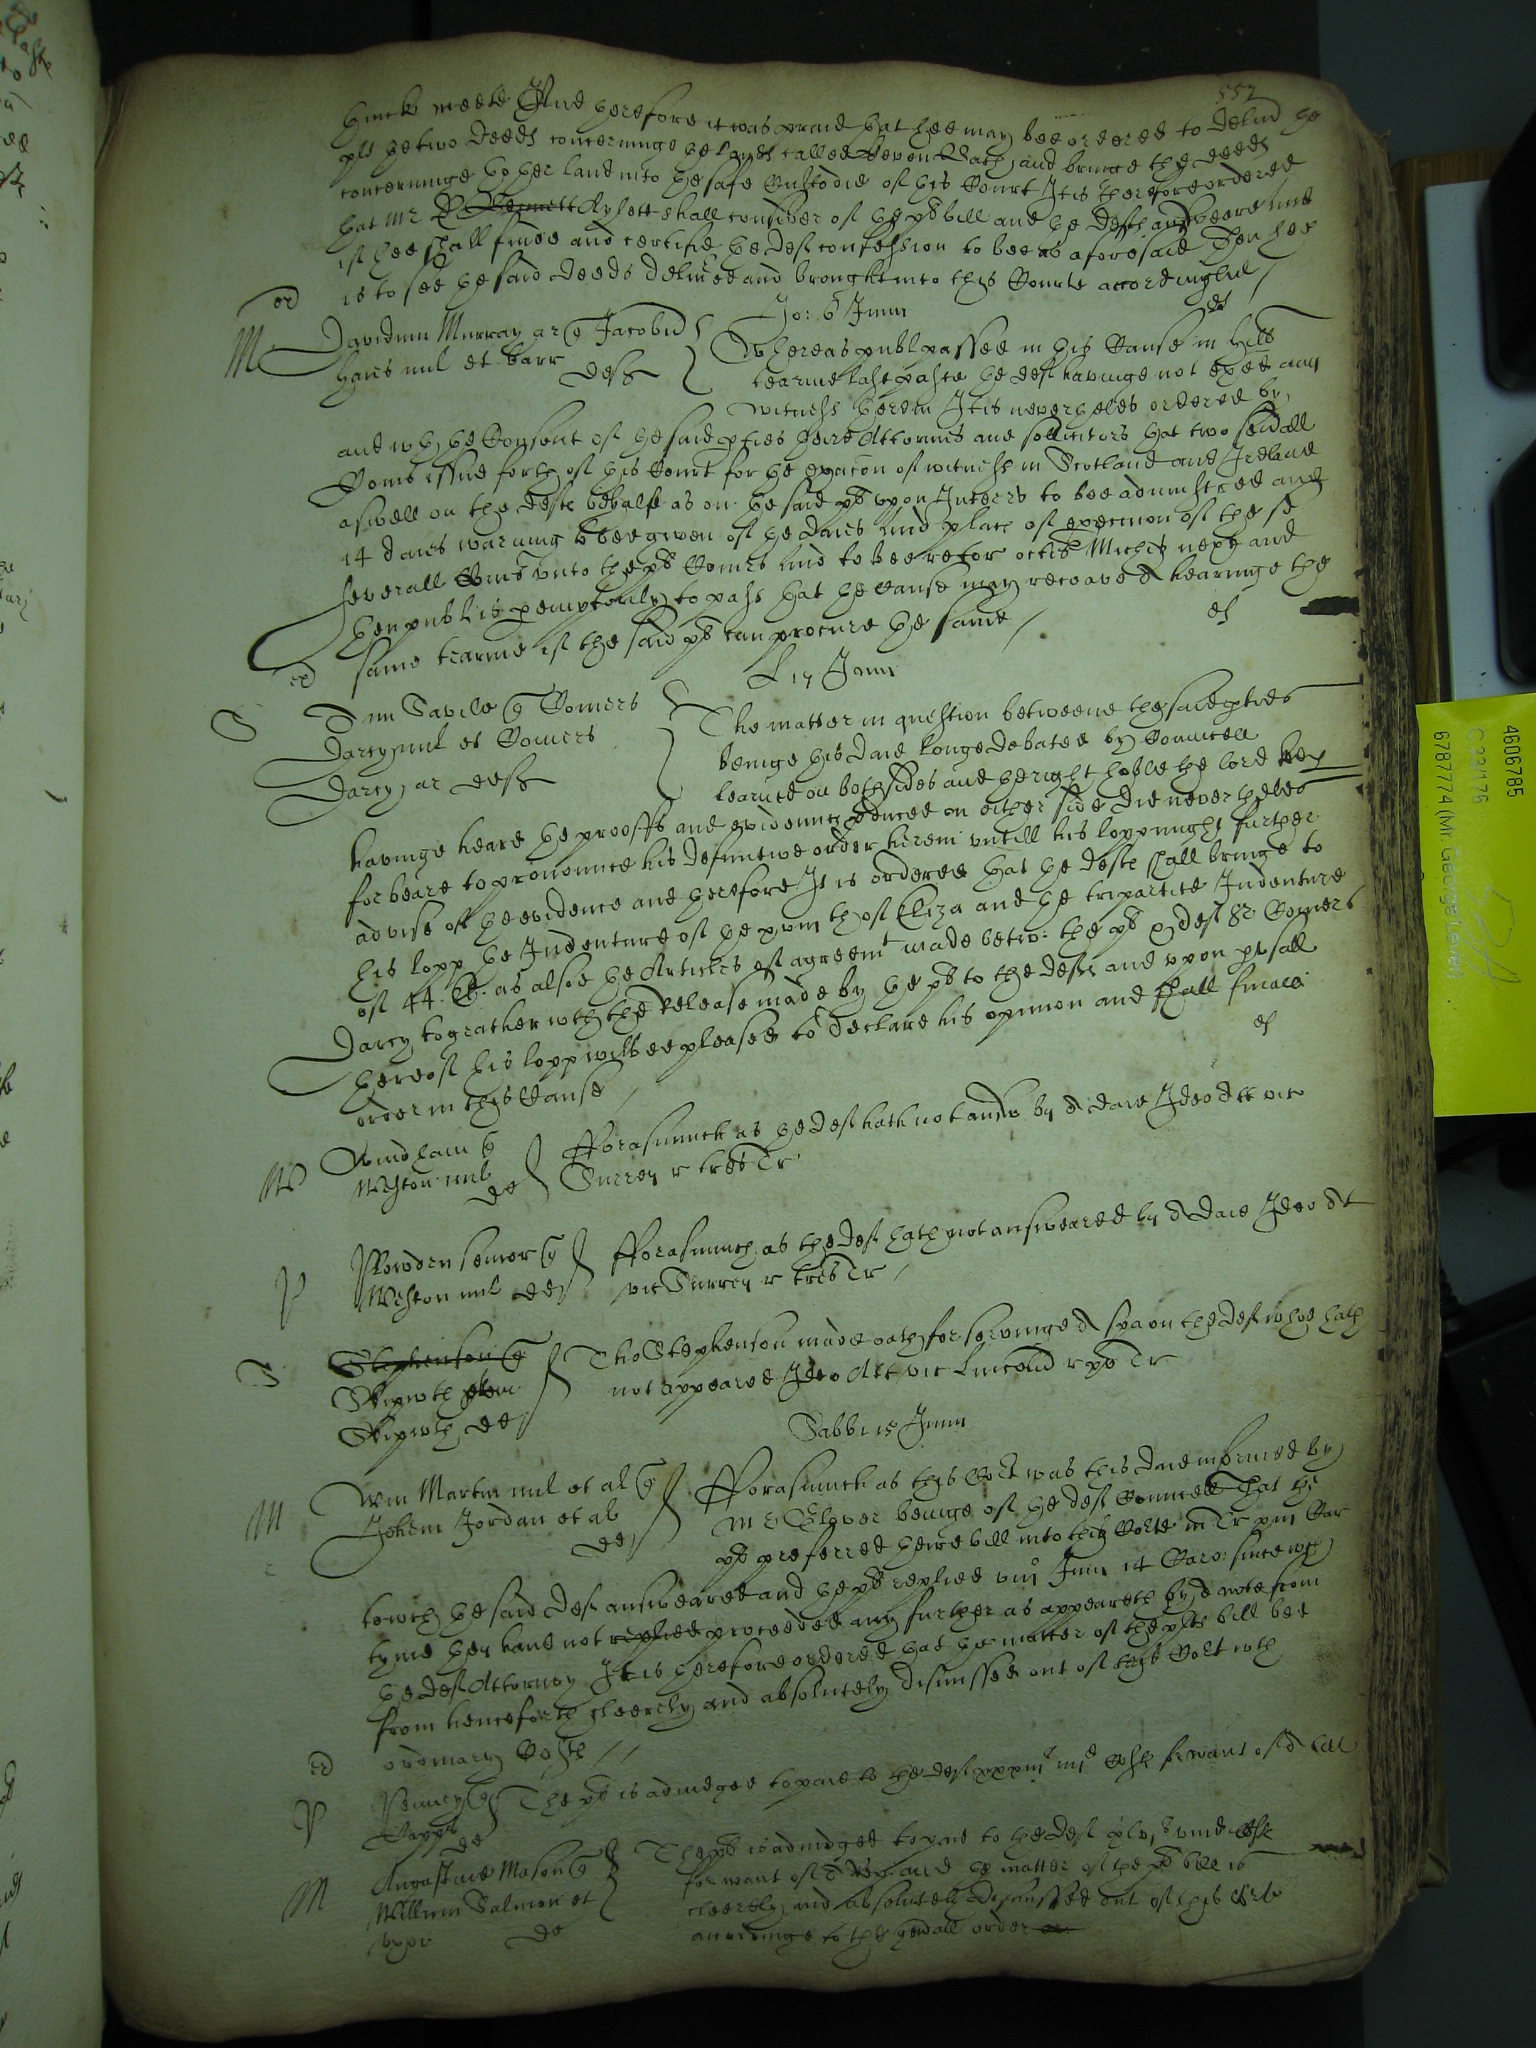 552
thinke meete And therefore it was praied that hee may bee ordered to deliud the
plt the two deeds concerninge the lands called Seven and bringe the deeds
concerninge thother land into the safe Custodie of this Court It is therefore ordered
that Mr Rylett shall consider of the plts bill and the defts answeare and
if hee shall finde and certifie the deft confession to bee as aforesaid Then hee
is to see the said deeds deliud and brought into this Courte accordinglie /
Jo: 6 Junii
M Davidum Murray ar q Jacobu
Haies mil et barr deft
Whereas publ passed in this Cause in Hill
tearme last paste the deft havinge not exed any
witness therein It is neverthelës ordered by
and wth the Consent of the said pties theire Attornies and sollicitors that two seuall
Coms issue forth of this Court for the exacon of witness in Scotland and Ireland
aswell on the defts behalfe as on the said plt upon Interrs to bee administred and
14 daies warning to bee given of the daies and place of execucion of the sd
severall Coms unto the plts Comrs and to bee retor octis Michis next and
then publ is peremptorily to pass that the Cause may receave a hearinge the
same tearme if the said plt can procure the same /
L 17 Junii
S Dnm Savile q Comers
Darcy mil et Comers
Darcy ar deft
The matter in question betweene the said pties
beinge this daie longe debated by Councell
learned on both sides and the right hoble the lord keep
havinge heard the prooffs and evidennce pduced on either side did neverthelës
forbeare to pronounce his definitive order herein untill his lopp might further
advise of the evidence and therefore It is ordered that the deft shall bringe to
his lopp the Indenture of the xviii th of Eliza and the tripartite Indenture
of 44. El. as alsoe the Articles of agreemt made betw: the plt & deft Sr Comers
Darcy together with the release made by the plt to the deft and upon pusall
thereof his lopp wilbee pleased to declare his opinion and small finall
order in this Cause /
W Windham q
Weston mil de
fforasmuch as the deft hath not answ by d daie Ideo att vic
Surrey r tres Tr
P Plowden senior q
Weston mil de
fforasmuch as the deft hath not answeared by d daie Ideo att
vic Surrey r tres Tr /
S Stephenson q
Skipwth
Skipwth de
Tho Stephenson made oath for servinge d spa on the deft whoe hath
not appeared Ideo Att vic Lincoln r Tr
Sabbi 15 Junii
M Wm Martin mil et al q
Johem Jordan et al
de
fforasmuch as this Cort was this daie informed by
Mr Glover beinge of the deft Councell That the
plt preferred theire bill into this Corte in Tr xiii Car
to wch the said deft answeared and the plt replied viii Junii 14 Caro: since wch
tyme they have not replied proceeded any further as appeareth by d note from
the deft Attorney It is therefore ordered that the matter of the plts bill bee
from henceforth cleerely and absolutely dismissed out of this Cort wth
ordinary Costs //
P Penney q
Capps de
The plt is adiudged to paie to the deft xxxiiis iiiid Costs for want of d bill
M Augustine Mason q
William Salmon et
uxor de
The plt is adiudged to paie to the deft xlvis viiid Costs
for want of d and the matter of the plt bill is
cleerely and absolutely dismissed out of this Cort
accordinge to the genall order
4606785
C 33/176
6787774 (Mr. George Leven)